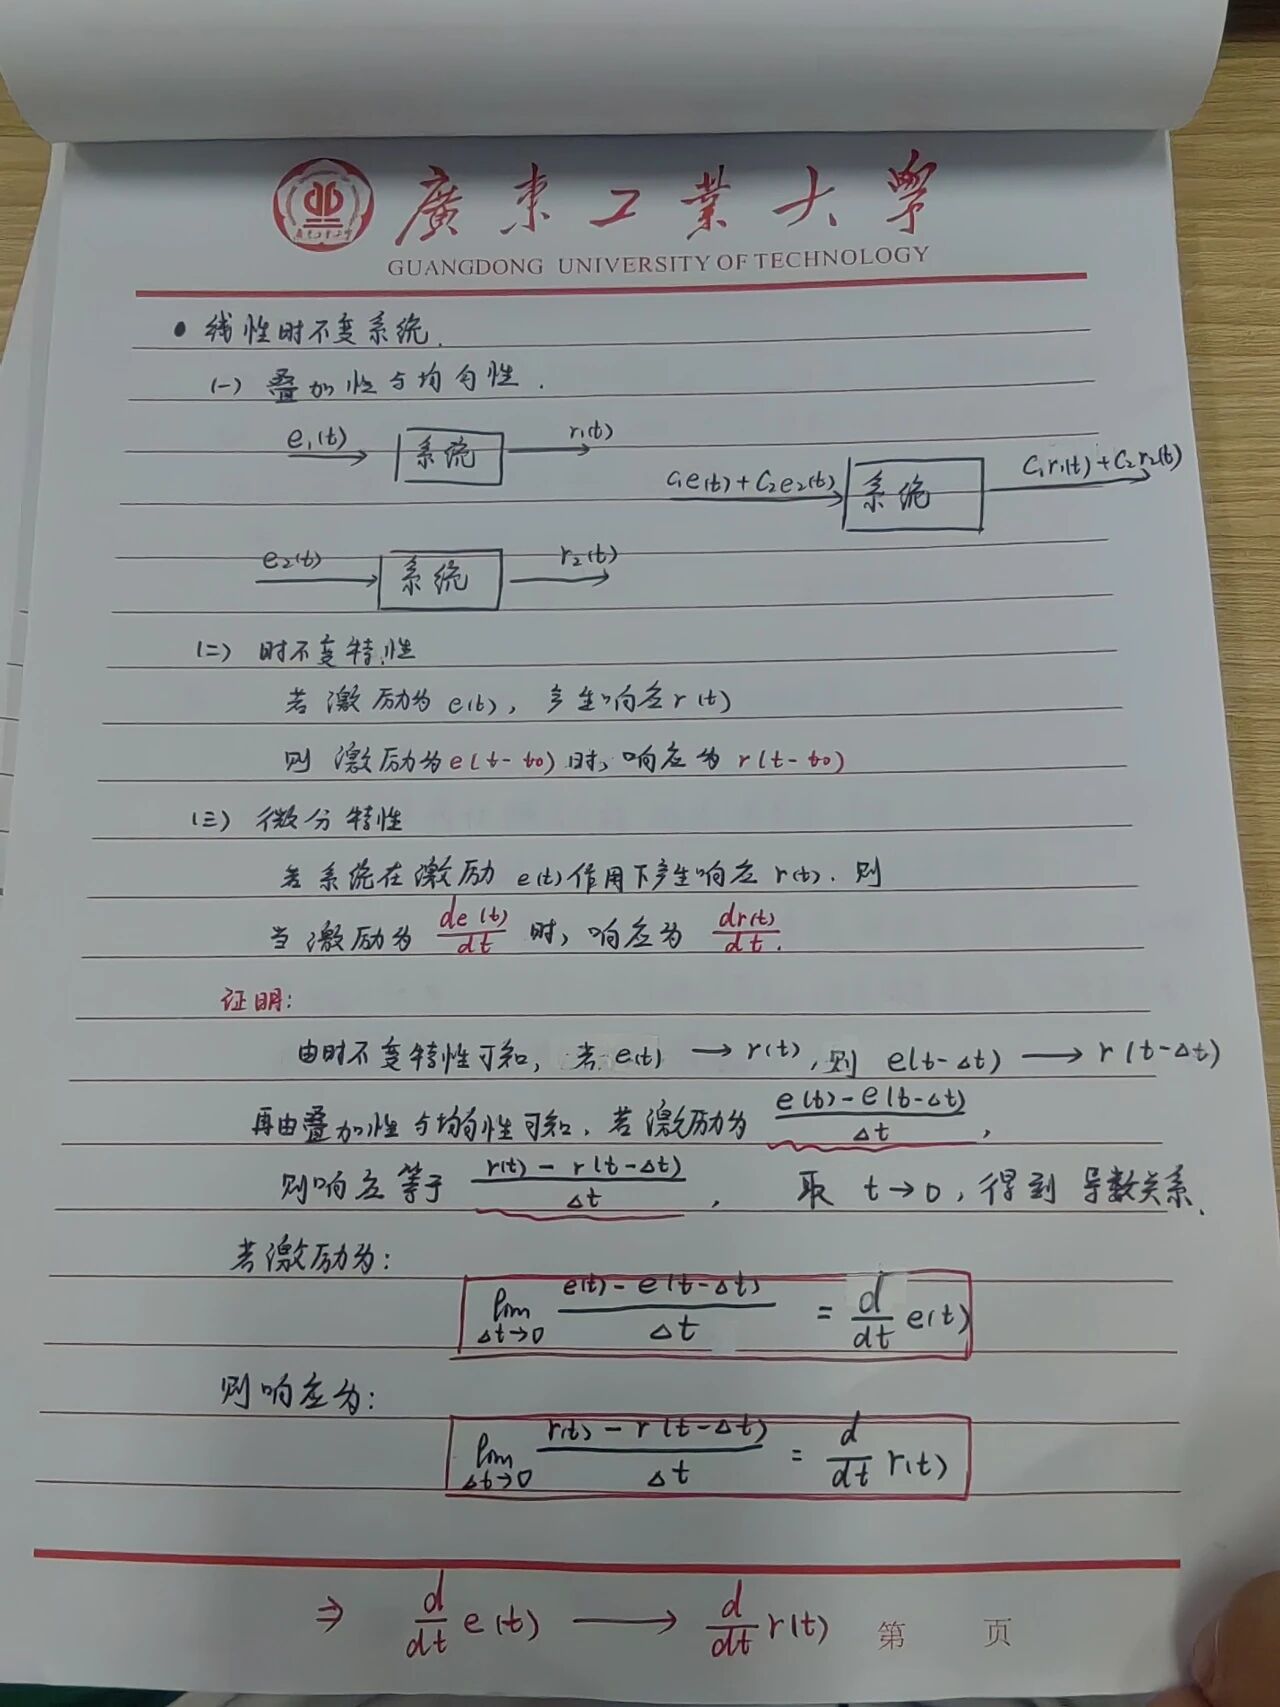 廣東工業大學
GUANGDONG UNIVERSITY OF TECHNOLOGY
• 线性时不变系统.
(一) 叠加性与均匀性.
e₁(t) → 系统 → r₁(t)
C₁e(t) + C₂e₂(t) → 系统 → C₁r₁(t) + C₂r₂(t)
e₂(t) → 系统 → r₂(t)
(二) 时不变特性
若激励为e(t), 产生响应r(t)
则 激励为e(t-t₀)时, 响应为 r(t-t₀)
(三) 微分特性
若系统在激励 e(t)作用下产生响应 r(t). 则
当激励为 de(t)/dt 时, 响应为 dr(t)/dt.
证明:
由时不变特性可知, 若 e(t) → r(t), 则 e(t-Δt) → r(t-Δt)
再由叠加性与均匀性可知, 若激励为 (e(t) - e(t-Δt))/Δt,
则响应等于 (r(t) - r(t-Δt))/Δt, 取 t→0, 得到 导数关系.
若激励为:
lim Δt→0 (e(t) - e(t-Δt))/Δt = d/dt e(t)
则响应为:
lim Δt→0 (r(t) - r(t-Δt))/Δt = d/dt r(t)
⇒ d/dt e(t) → d/dt r(t)
第 页